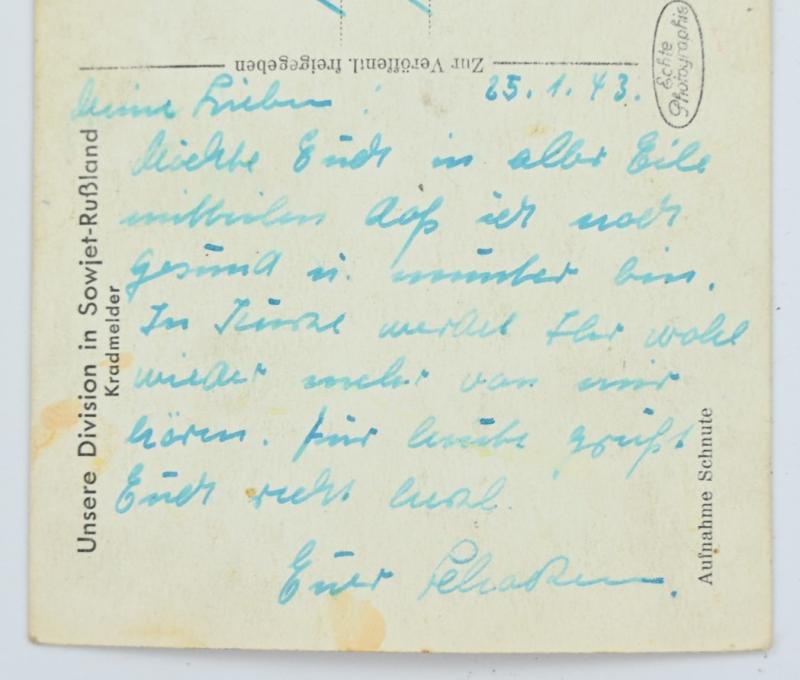 Zur Veröffentl. freigegeben
Echte
Photographie
25.1.43.
Meine Lieben!
Möchte Euch in aller Eile
mitteilen daß ich noch
gesund u. munter bin.
In Kürze werdet Ihr wohl
wieder mehr von mir
hören. Für heute grüßt
Euch recht herzl.
Euer
Unsere Division in Sowjet-Rußland
Kradmelder
Aufnahme Schnute